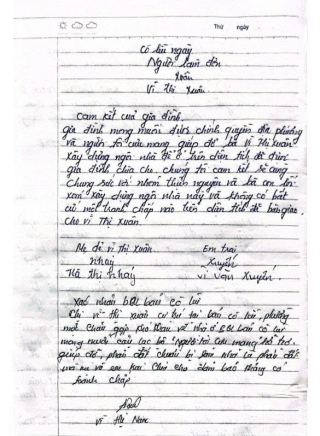 Thứ ngày
Có lũ ngày
Người làm đơn
Xuân
Vi Thị Xuân
Cam kết của gia đình.
gia đình mong muốn được chính quyền địa phương
và người tổ cứu mang giúp đỡ bà Vi Thị Xuân
xây dựng ngôn nhà để ở trên diện tích đã được
gia đình chia cho, chúng tôi cam kết sẽ cùng
Chung sức với nhóm thiện nguyện và bà con lối
xóm xây dựng ngôn nhà này và không có bất
cứ một tranh chấp nào trên diện tích đã bàn giao
cho Vi Thị Xuân.
Mẹ đẻ vi Thị Xuân Em trai
nhay Xuyến
Hà thị nhay vi văn Xuyến
Xác nhận bản có lũ
Chị vi thị xuân cư trú tại bản có lũ, phường
một cháu gặp khó khăn về nhà ở bản có lũ
mong muốn câu lạc bộ "Người tôi cưu mang" hỗ trợ
giúp đỡ, phần đất
mẹ và em trai cho đảm bảo không có
tranh chấp
vi thị Nam